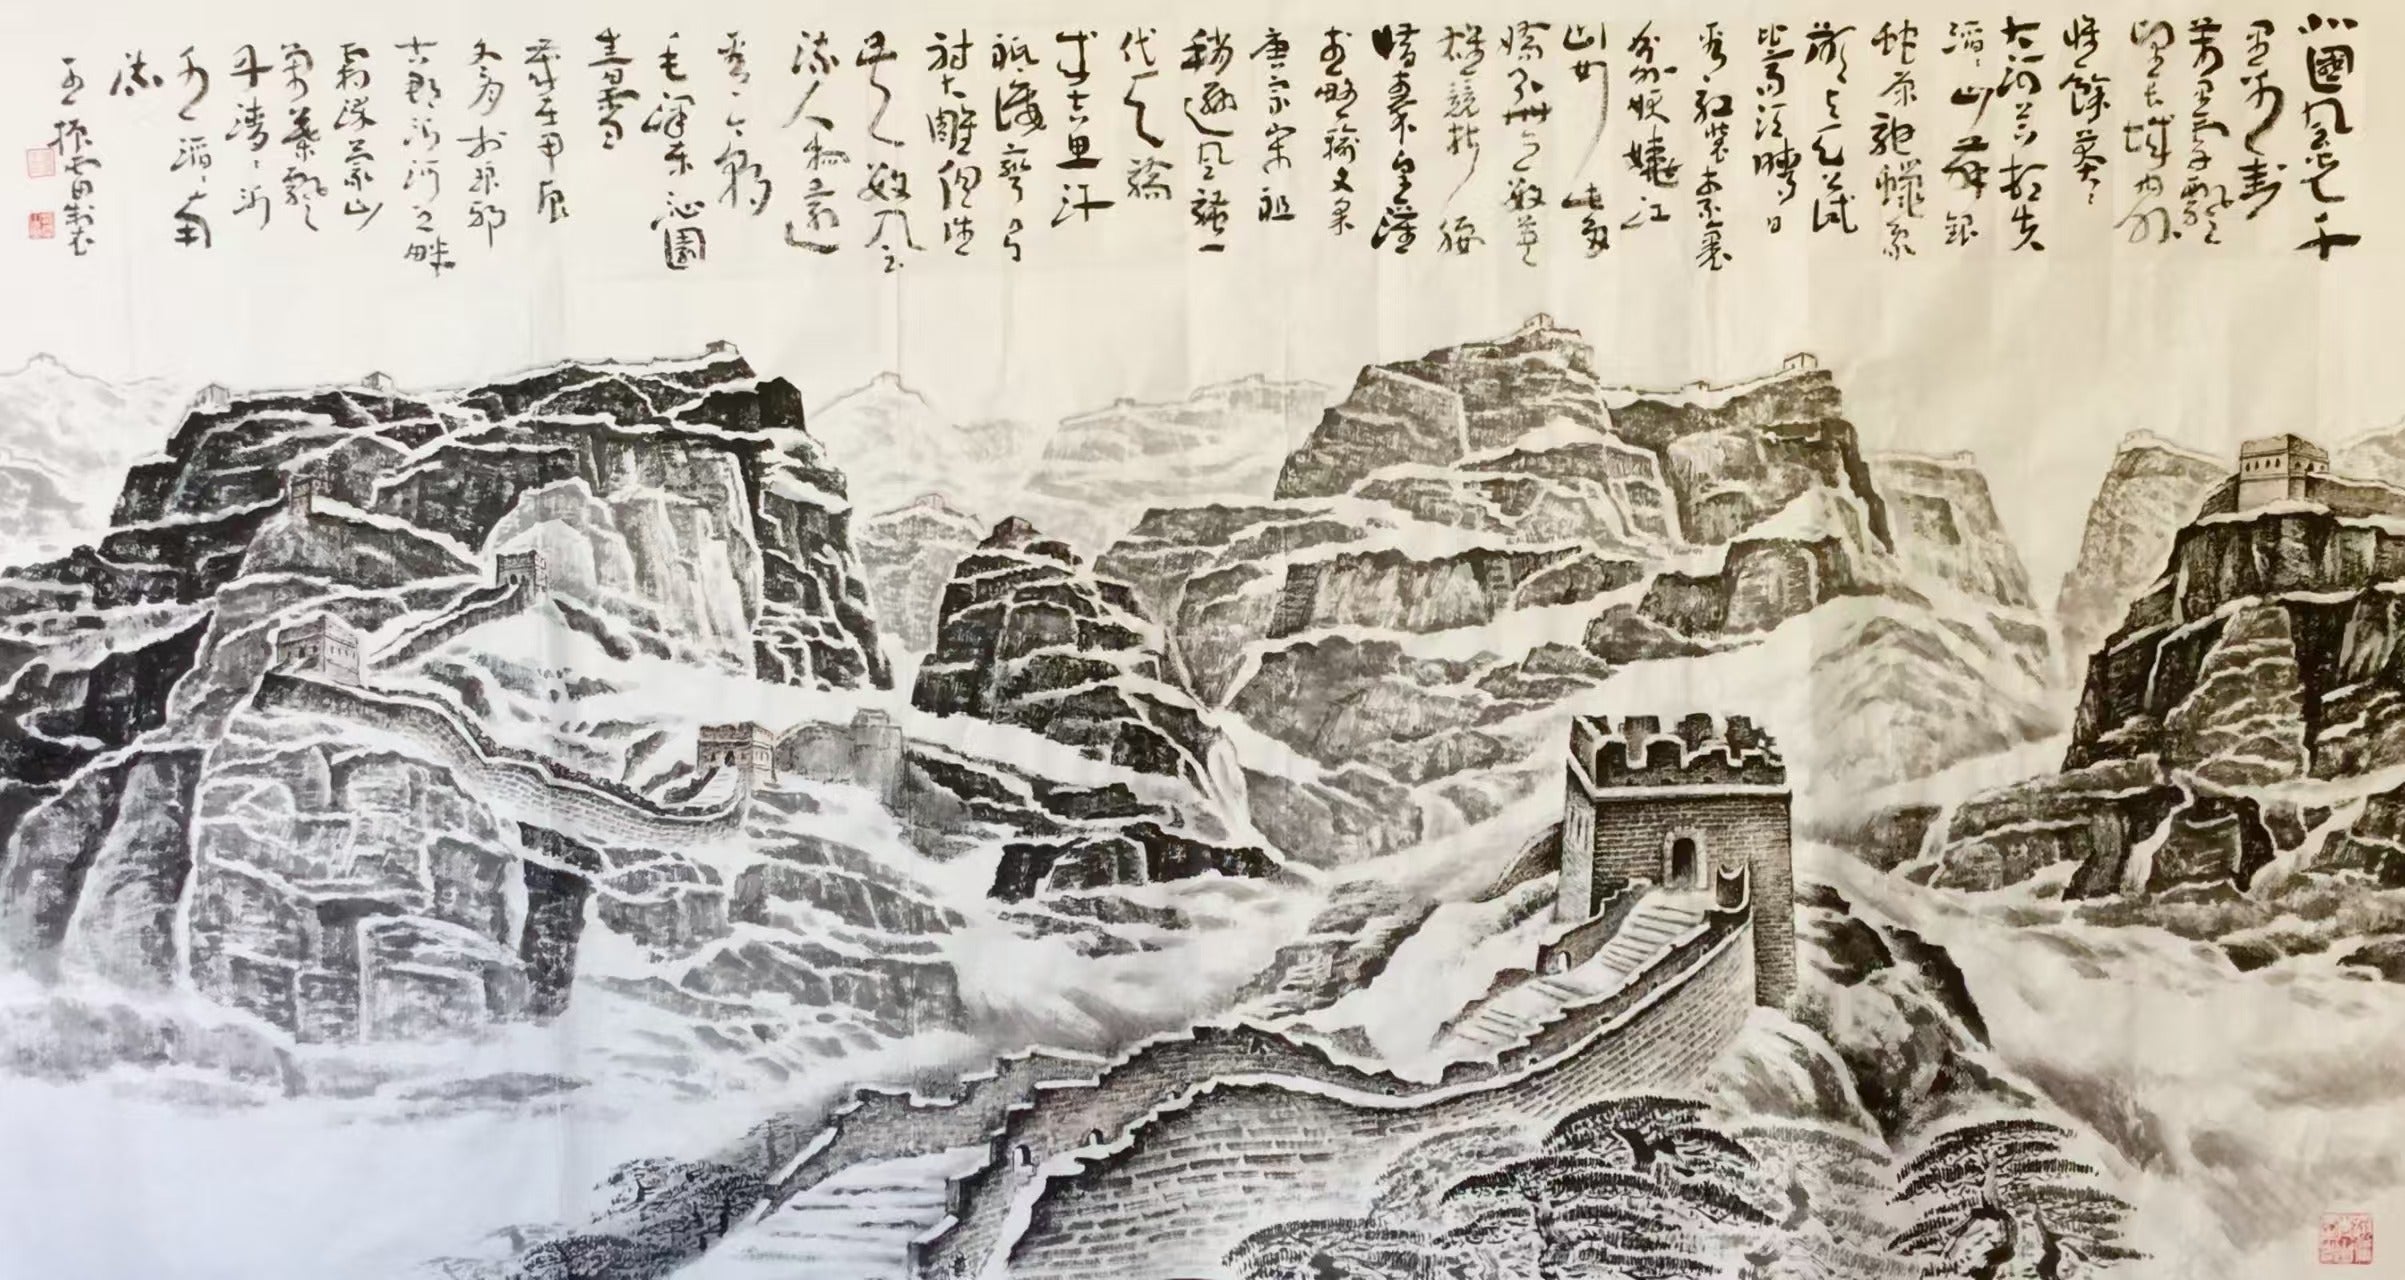 北國風光千
里冰封
萬里雪飄
望長城內外
惟餘莽莽
大河上下頓失
滔滔山舞銀
蛇原馳蠟象
欲與天公試
比高須晴日
看紅裝素裹
分外妖嬈江
山如此多
嬌引無數英
雄競折腰
惜秦皇漢
武略輸文采
唐宗宋祖
稍遜風騷一
代天驕
成吉思汗
祇識彎弓
射大雕俱往
矣數風
流人物還
看今朝
毛澤東沁園
春雪
歲在甲辰
冬月於琅琊
古郡沂河之畔
霜染蒙山
萬葉飄
丹清清沂
水滔滔南
流
王振雷製